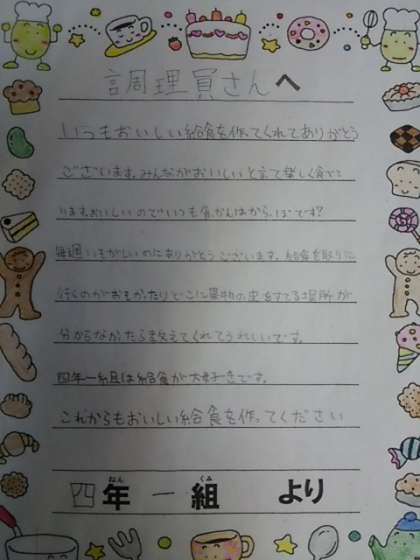 調理員さんへ
いつもおいしい給食を作ってくれてありがとう
ございます。みんながおいしいと言て楽しく食べて
います。おいしいのでいつも食かんはからっぽです?
毎週いそがしいのにありがとうございます。給食を取りに
行くのがおもかたりどこに果物の皮をすてる場所が
分からなかたら教えてくれてうれしいです。
四年一組は給食が大好きです。
これからもおいしい給食を作ってください
四年一組より
ねん
くみ